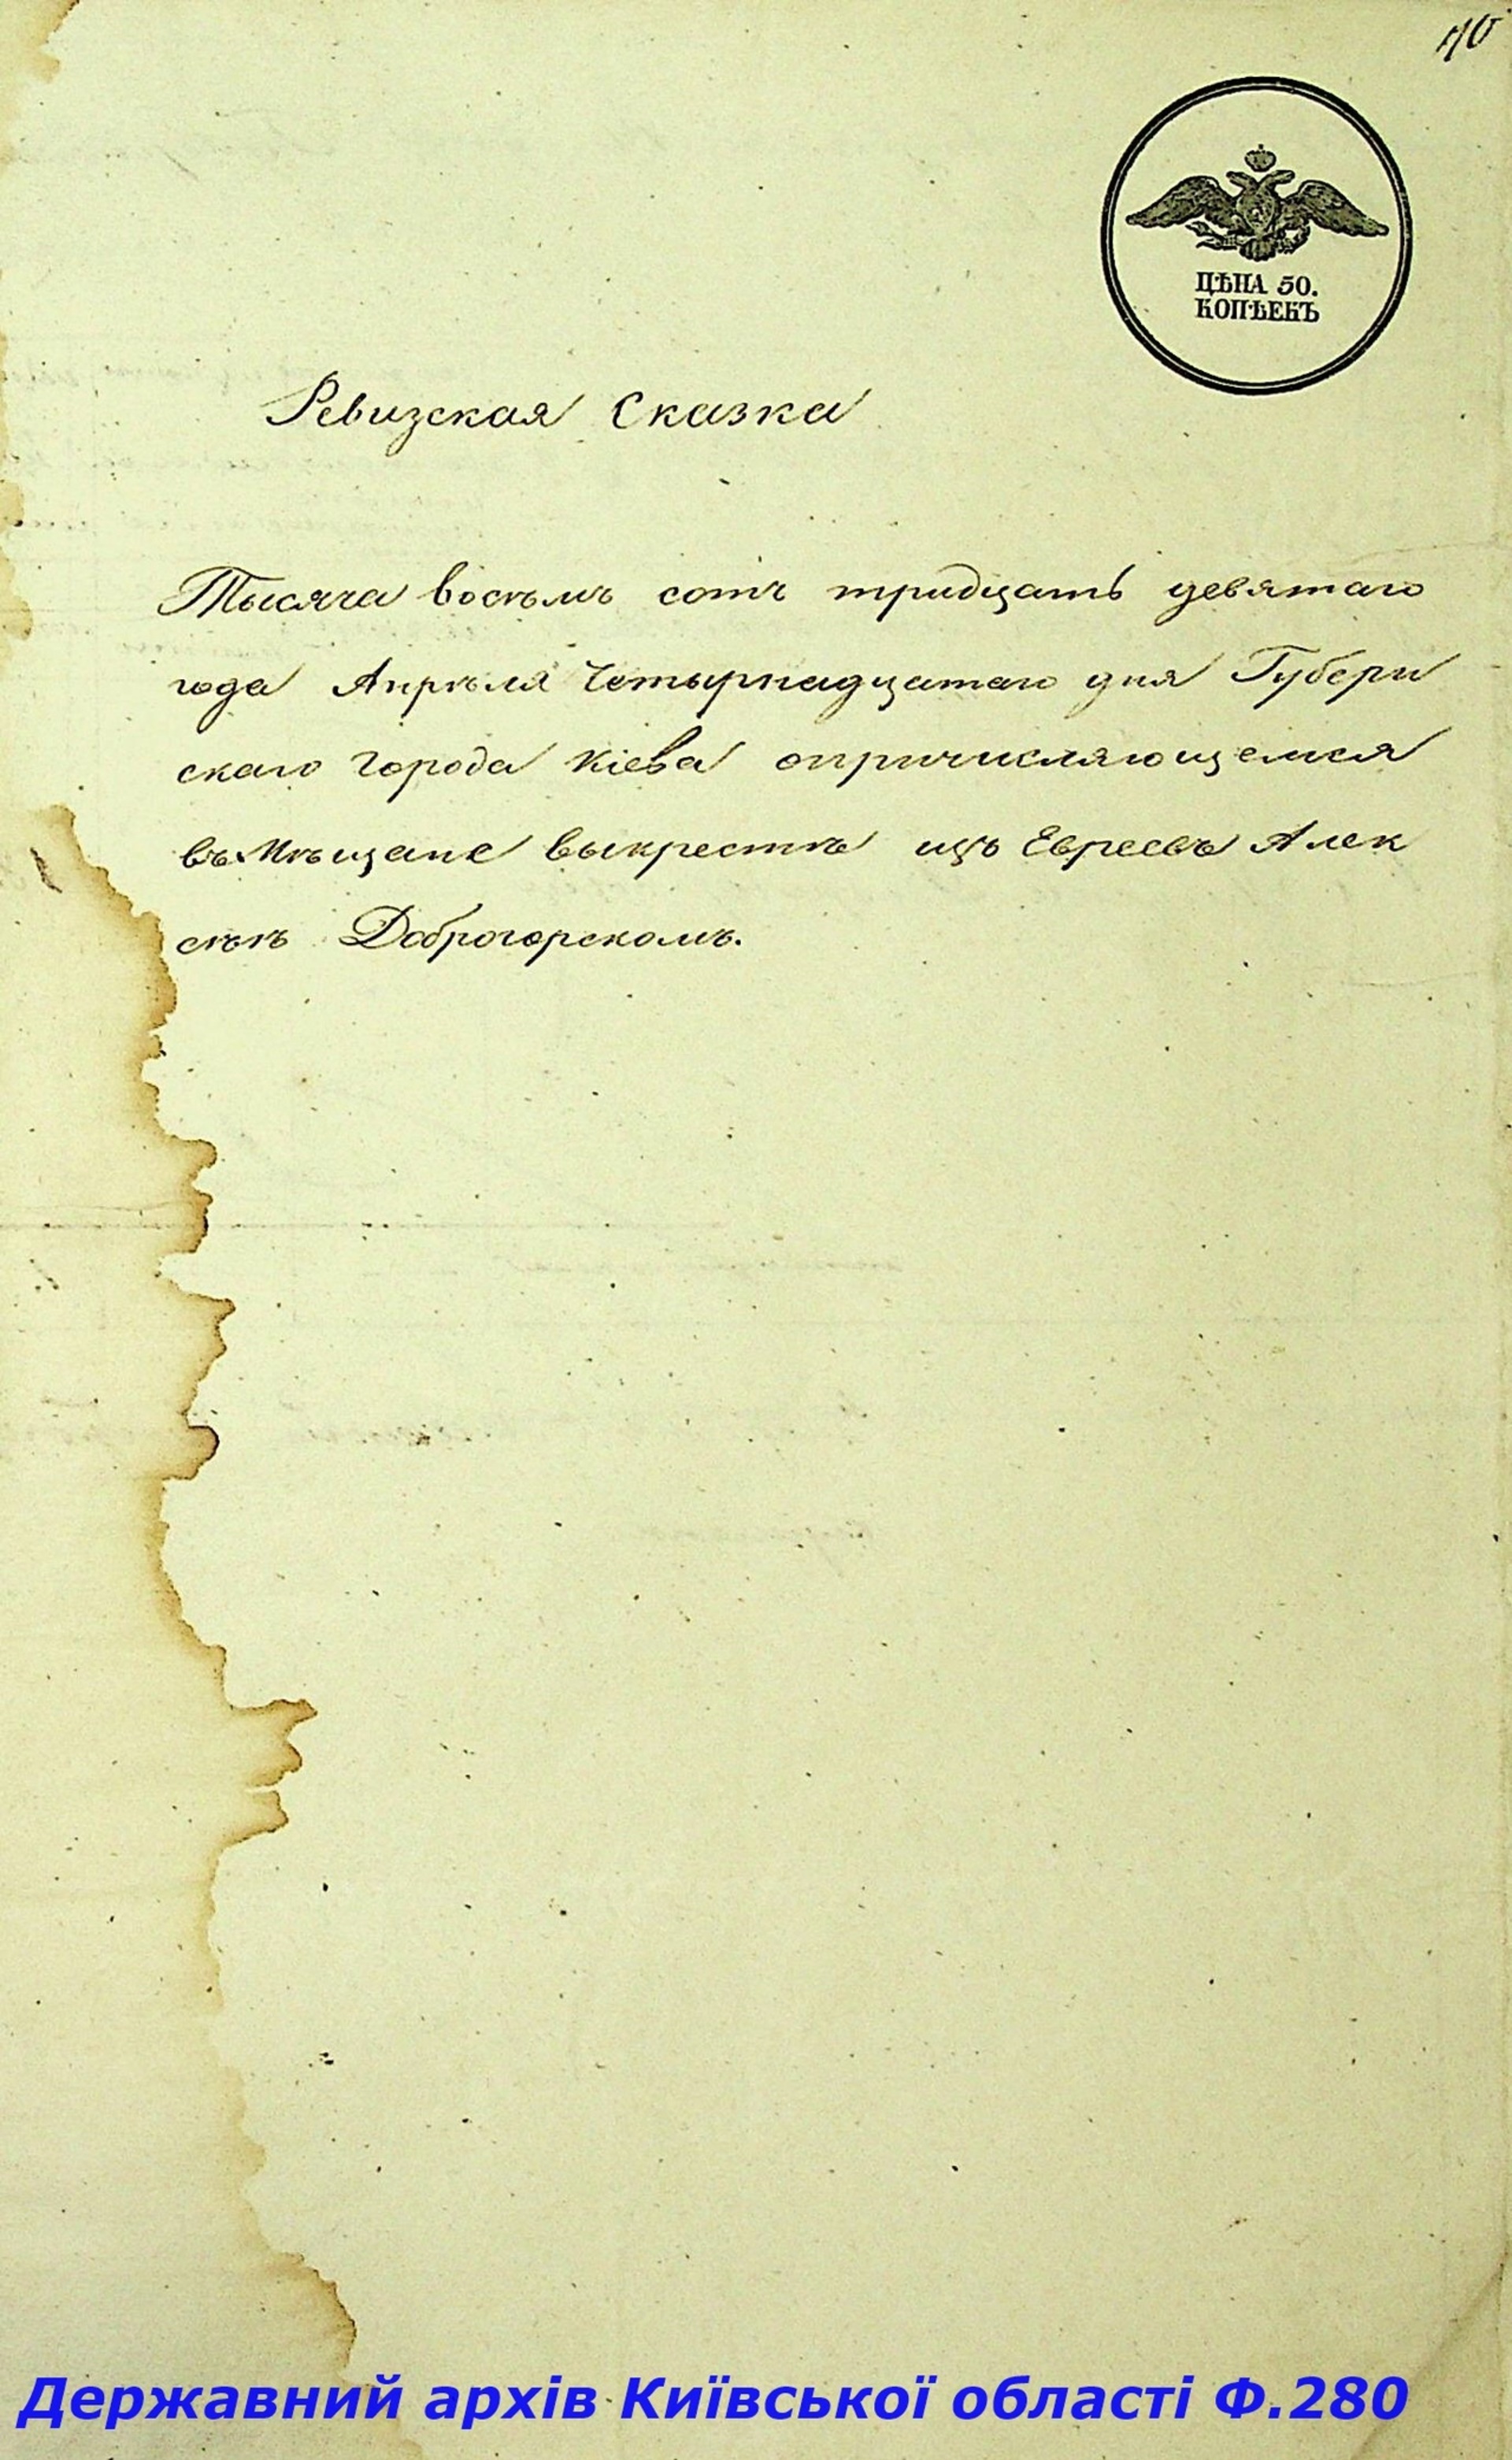 110
ЦѢНА 50.
КОПѢЕКЪ
Ревизская Сказка
Тысяча восѣмъ сотъ тридцать девятаго
года Апрѣля Четырнадцатаго дня Губерн
скаго города Кіева опричисляющемся
въ Мѣщане выкрестѣ изъ Евреевъ Алек
сѣѣ Доброгорскомъ.
Державний архів Київської області Ф.280